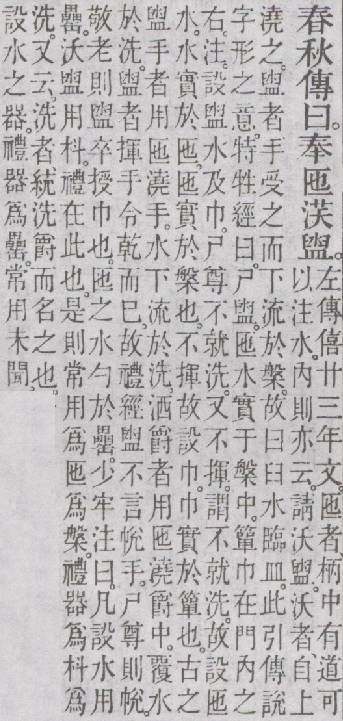 春秋傳曰。奉匜沃盥。左傳僖廿三年文。匜者、柄中有道可
以注水。內則亦云。請沃盥。沃者、自上
澆之。盥者手受之而下流於槃。故曰臼水臨皿。此引傳說
字形之意。特牲經曰。尸盥。匜水實于槃中。簞巾在門內之
右。注。設盥水及巾。尸尊不就洗。又不揮。謂不就洗。故設匜
水。水實於匜。匜實於槃也。不揮。故設巾。巾實於簞也。古之
盥手者用匜澆手。水下流於洗。洒爵者用匜澆爵中。覆水
於洗。盥者揮手令乾而已。故禮經盥不言帨手。尸尊則帨。
敬老則盥卒授巾也。匜之水勺於罍。少牢注曰。凡設水用
罍。沃盥用枓。禮在此也。是則常用爲匜爲槃。禮器爲枓爲
洗。又云。洗者統洗爵而名之也。
設水之器。禮器爲罍。常用未聞。